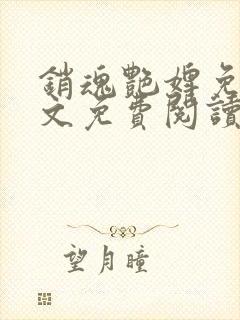 銷魂艷婢免
文免費閱讀
望月瞳